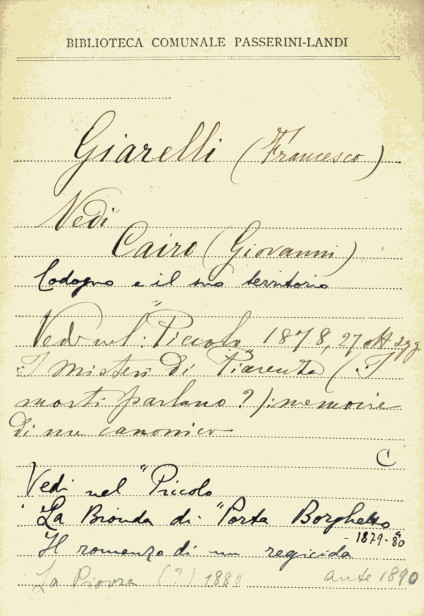 BIBLIOTECA COMUNALE PASSERINI-LANDI
Giarelli (Francesco)
Vedi
Cairo (Giovanni)
Codogno e il suo territorio
Vedi nel: "Piccolo 1878, 27 ott. sgg
I misteri di Piacenza (I
morti parlano?): memorie
di un canonico
C
Vedi nel "Piccolo
"La Bionda di "Porta Borghetto
- 1879-80
"Il romanzo di un regicida
La Piovra (?) 1880 ante 1890